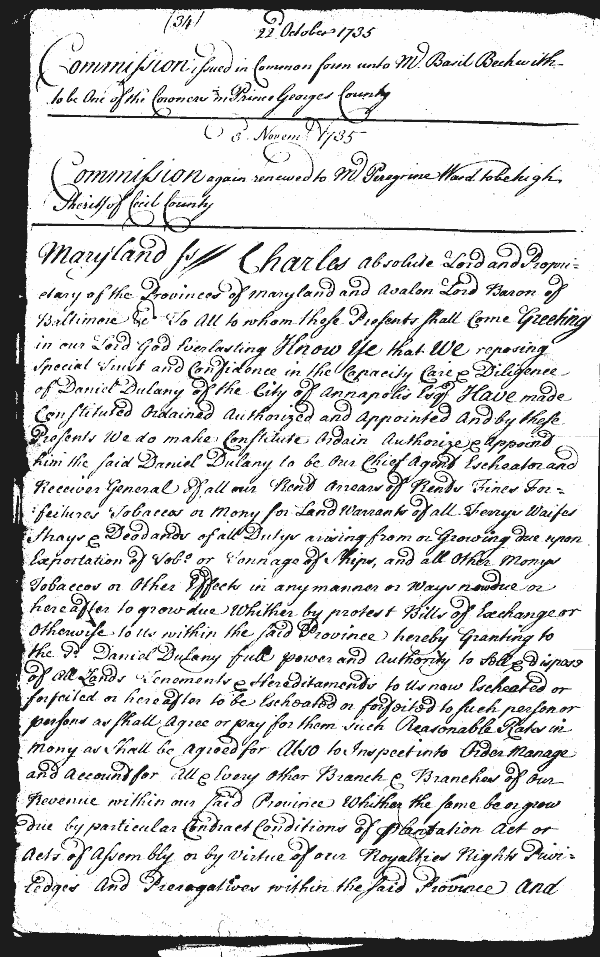 (34)
22 October 1735
Commission issued in Common form unto Mr. Basil Beckwith
to be One of the Coroners in Prince Georges County
5 Novemr 1735
Commission again renewed to Mr Peregrine Ward to be high
Sheriff of Cecil County
Maryland ss Charles absolute Lord and Propri=
etary of the Provinces of Maryland and Avalon Lord Baron of
Baltimore &c To All to whom these Presents shall Come Greeting
in our Lord God Everlasting Know Ye that We reposing
Special Trust and Confidence in the Capacity Care & Diligence
of Daniel Dulany of the City of Annapolis Esqr Have made
Constituted Ordained Authorized and Appointed And by these
Presents We do make Constitute Ordain Authorize & Appoint
him the said Daniel Dulany to be Our Chief Agent Escheator and
Receiver General of all our Rent Arrears of Rents Fines For=
feitures Tobaccos or Mony for Land Warrants of all Ferrys Waifes
Strays & Deodands of all Dutys arising from or Growing due upon
Exportation of Tobo or Tonnage of Ships, and all Other Monys
Tobaccos or Other Effects in any manner or Ways now due or
hereafter to grow due Whither by protest Bills of Exchange or
Otherwise to Us within the said Province hereby Granting to
the Sd Daniel Dulany full power and Authority to Sell & dispose
of All Lands Tenements & Hereditaments to Us now Escheated or
forfeited or hereafter to be Escheated or forfeited to such person or
persons as shall Agree or pay for them such Reasonable Rates in
Mony as Shall be Agreed for Also to Inspect into Order Manage
and Account for All & Every Other Branch & Branches of Our
Revenue within our said Province Whither the same be or grow
due by particular Contract Conditions of plantation Act or
Acts of Assembly or by Virtue of our Royalties Rights Privi=
ledges And Prerogatives within the said Province And